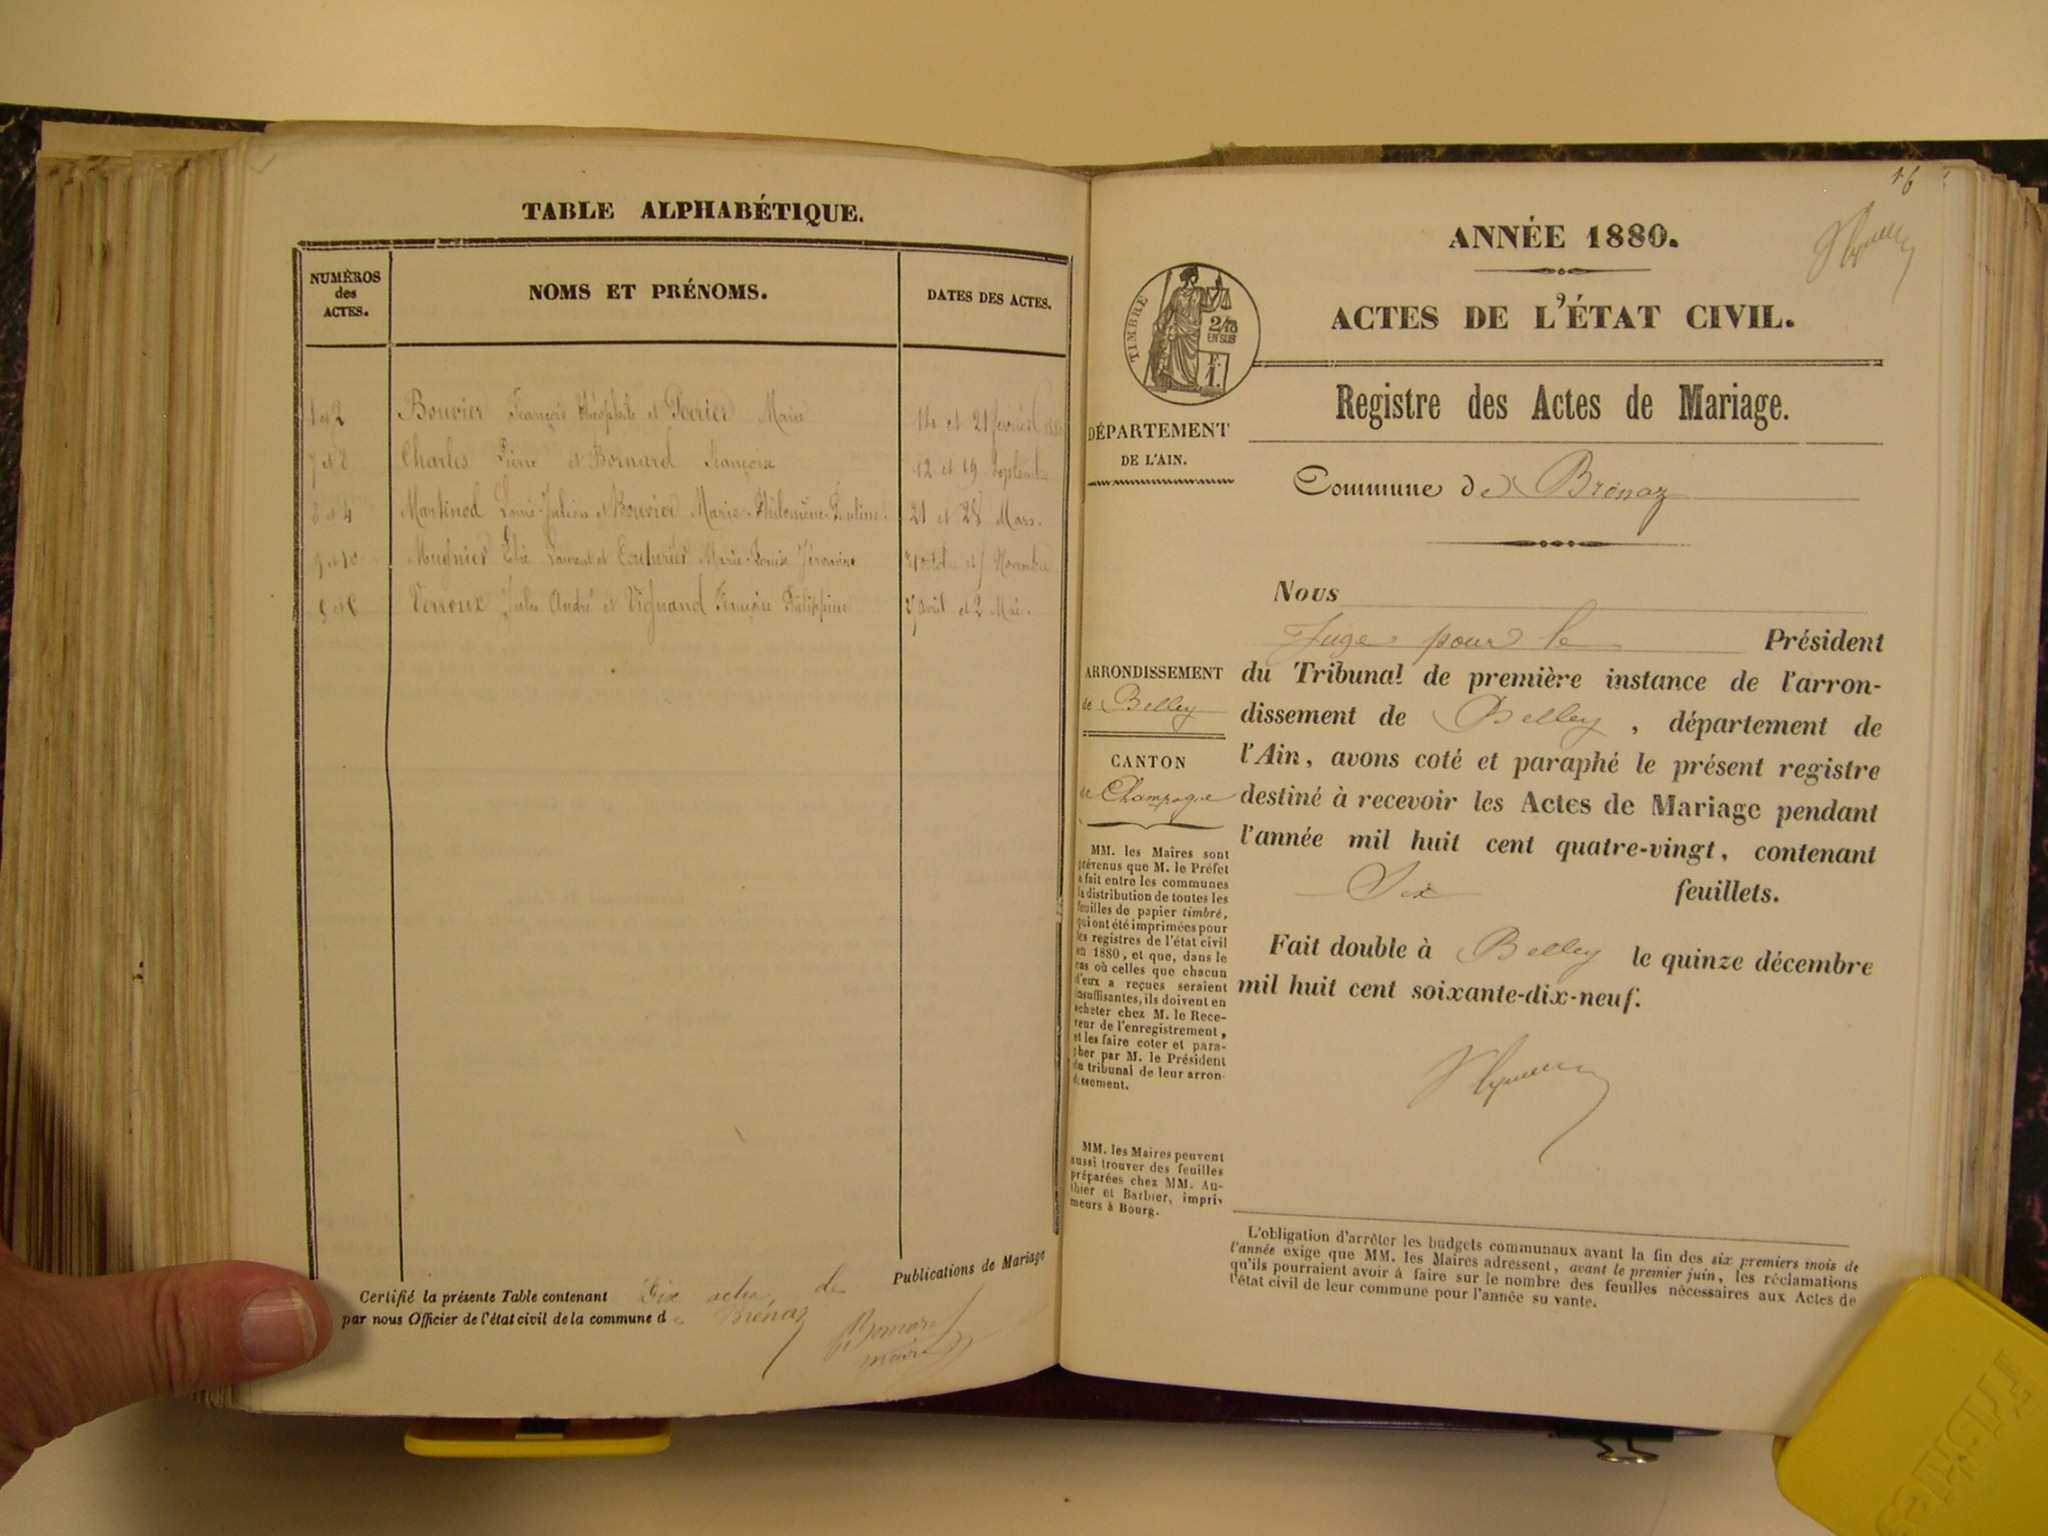 TABLE ALPHABÉTIQUE.
NUMÉROS
des
ACTES.
NOMS ET PRÉNOMS.
DATES DES ACTES.
1 et 2 Bouvier François Théophile et Perrier Marie 14 et 21 février
7 et 8 Charles Pierre et Bornard Françoise 12 et 19 Septembre
3 et 4 Martinod Louis-Julien et Bouvier Marie-Philomène- 21 et 28 Mars.
9 et 10 Mugnier Laurent et Couturier Marie-Louise
5 et 6 Jules André et Vignand Philippine avril et 2 Mai.
Certifié la présente Table contenant Dix actes de Publications de Mariage
par nous Officier de l'état civil de la commune de Brénaz
Bornard
maire
16
ANNÉE 1880.
ACTES DE L'ÉTAT CIVIL.
TIMBRE
2/10
EN SUS
F.
1.
Registre des Actes de Mariage.
DÉPARTEMENT
DE L'AIN.
Commune de Brénaz
Nous
Juge pour le Président
du Tribunal de première instance de l'arron-
dissement de Belley, département de
l'Ain, avons coté et paraphé le présent registre
destiné à recevoir les Actes de Mariage pendant
l'année mil huit cent quatre-vingt, contenant
Six feuillets.
Fait double à Belley le quinze décembre
mil huit cent soixante-dix-neuf.
ARRONDISSEMENT
de Belley
CANTON
de Champagne
MM. les Maires sont
prévenus que M. le Préfet
a fait entre les communes
la distribution de toutes les
feuilles de papier timbré,
qui ont été imprimées pour
les registres de l'état civil
en 1880, et que, dans le
cas où celles que chacun
d'eux a reçues seraient
insuffisantes, ils doivent en
acheter chez M. le Rece-
veur de l'enregistrement,
et les faire coter et para-
pher par M. le Président
du tribunal de leur arron-
dissement.
MM. les Maires peuvent
aussi trouver des feuilles
préparées chez MM. Au-
thier et Barbier, impri-
meurs à Bourg.
L'obligation d'arrêter les budgets communaux avant la fin des six premiers mois de
l'année exige que MM. les Maires adressent, avant le premier juin, les réclamations
qu'ils pourraient avoir à faire sur le nombre des feuilles nécessaires aux Actes de
l'état civil de leur commune pour l'année su vante.